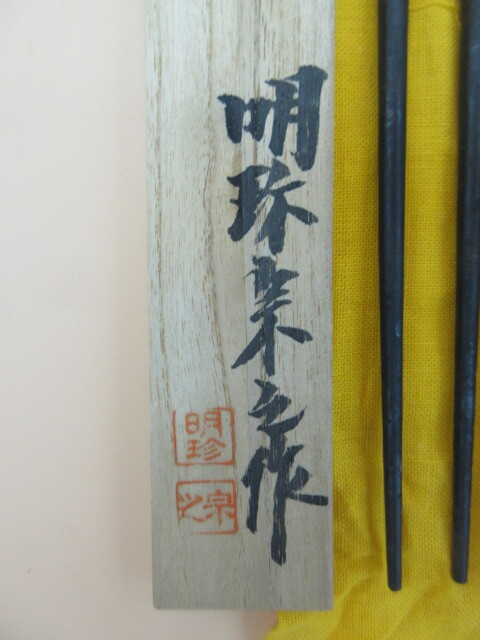 明珎宗之作
明珍
宗之